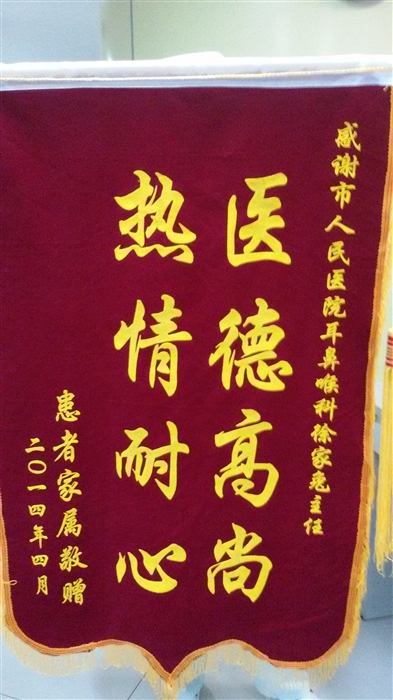 感谢市人民医院耳鼻喉科徐家兔主任
医德高尚
热情耐心
患者家属敬赠
二〇一四年四月